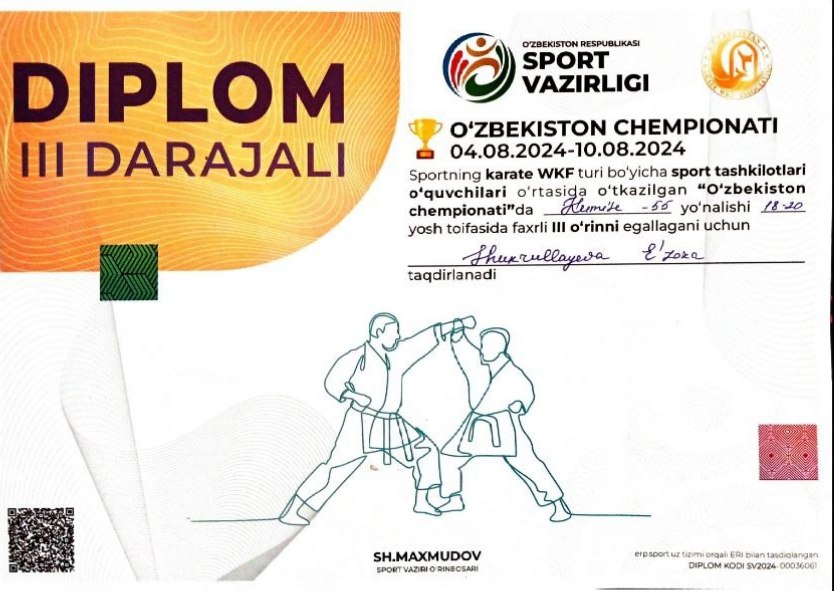 DIPLOM
III DARAJALI
O'ZBEKISTON RESPUBLIKASI
SPORT
VAZIRLIGI
O'ZBEKISTON CHEMPIONATI
04.08.2024-10.08.2024
Sportning karate WKF turi bo'yicha sport tashkilotlari
o'quvchilari o'rtasida o'tkazilgan "O'zbekiston
chempionati"da Kumite -55 yo'nalishi 18-20
yosh toifasida faxrli III o'rinni egallagani uchun
Shuxrullayeva E'zoza
taqdirlanadi
SH.MAXMUDOV
SPORT VAZIRI O'RINBOSARI
erp.sport.uz tizimi orqali ERI bilan tasdiqlangan
DIPLOM KODI SV2024-00036061